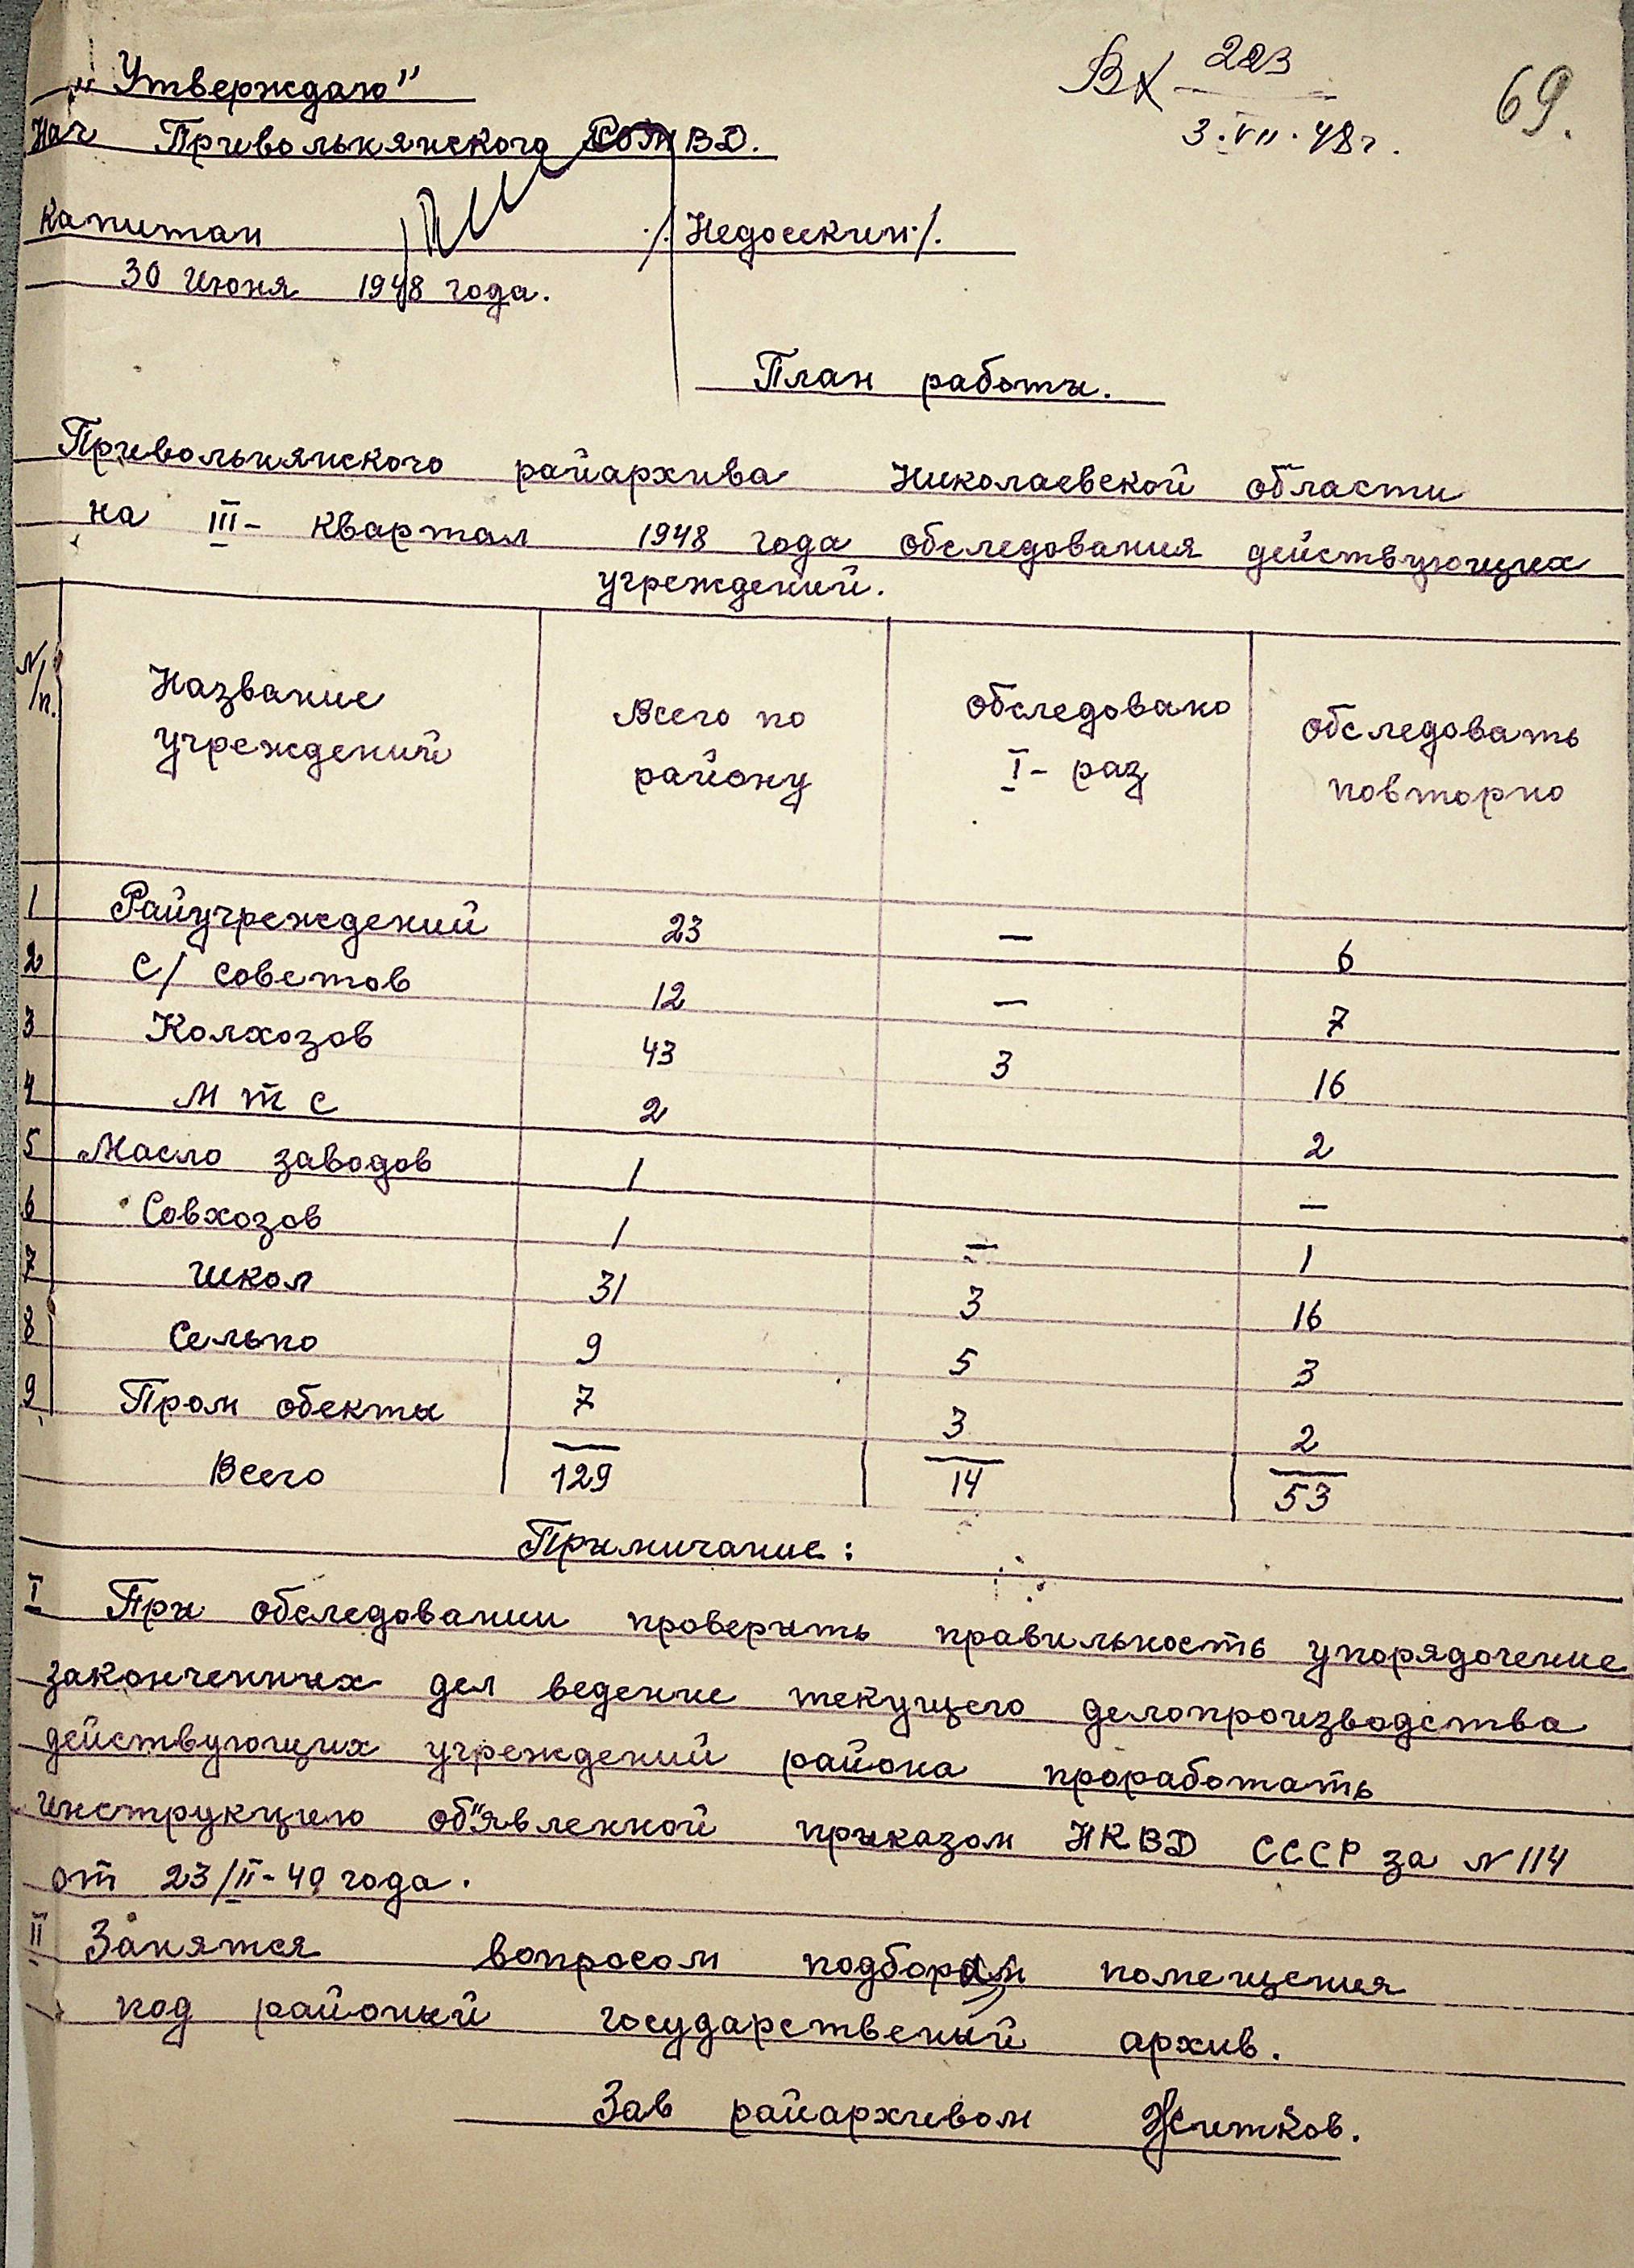 „Утверждаю"
Нач Привольнянского РОМВД.
Капитан /Недосекин/.
30 Июня 1948 года.
Вх 223
3.VII.48г.
69.
План работы.
Привольнянского райархива Николаевской области
на III- квартал 1948 года обследования действующих
учреждений.
N/п. Название учреждений Всего по району Обследовано I- раз Обследовать повторно
1 Райучреждений 23 — 6
2 С/советов 12 — 7
3 Колхозов 43 3 16
4 М Т С 2 2
5 Масло заводов 1 —
6 Совхозов 1 — 1
7 Школ 31 3 16
8 Сельпо 9 5 3
9 Пром обекты 7 3 2
Всего 129 14 53
Примичание:
I При обследовании проверыть правильность упорядочение
законченных дел ведение текущего делопроизводства
действующих учреждений района проработать
инструкцию об"явленной приказом НКВД СССР за N 114
от 23/II-40 года.
II Занятся вопросом подбором помещения
под районый государственый архив.
Зав райархивом Житков.